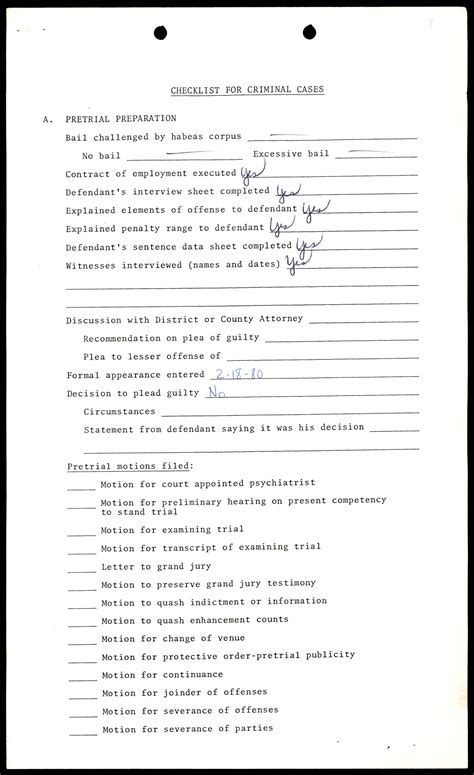 CHECKLIST FOR CRIMINAL CASES
A. PRETRIAL PREPARATION
Bail challenged by habeas corpus —
No bail — Excessive bail —
Contract of employment executed Yes
Defendant's interview sheet completed Yes
Explained elements of offense to defendant Yes
Explained penalty range to defendant Yes
Defendant's sentence data sheet completed Yes
Witnesses interviewed (names and dates) Yes
Discussion with District or County Attorney
Recommendation on plea of guilty
Plea to lesser offense of
Formal appearance entered 2-18-80
Decision to plead guilty No
Circumstances
Statement from defendant saying it was his decision
Pretrial motions filed:
Motion for court appointed psychiatrist
Motion for preliminary hearing on present competency
to stand trial
Motion for examining trial
Motion for transcript of examining trial
Letter to grand jury
Motion to preserve grand jury testimony
Motion to quash indictment or information
Motion to quash enhancement counts
Motion for change of venue
Motion for protective order-pretrial publicity
Motion for continuance
Motion for joinder of offenses
Motion for severance of offenses
Motion for severance of parties